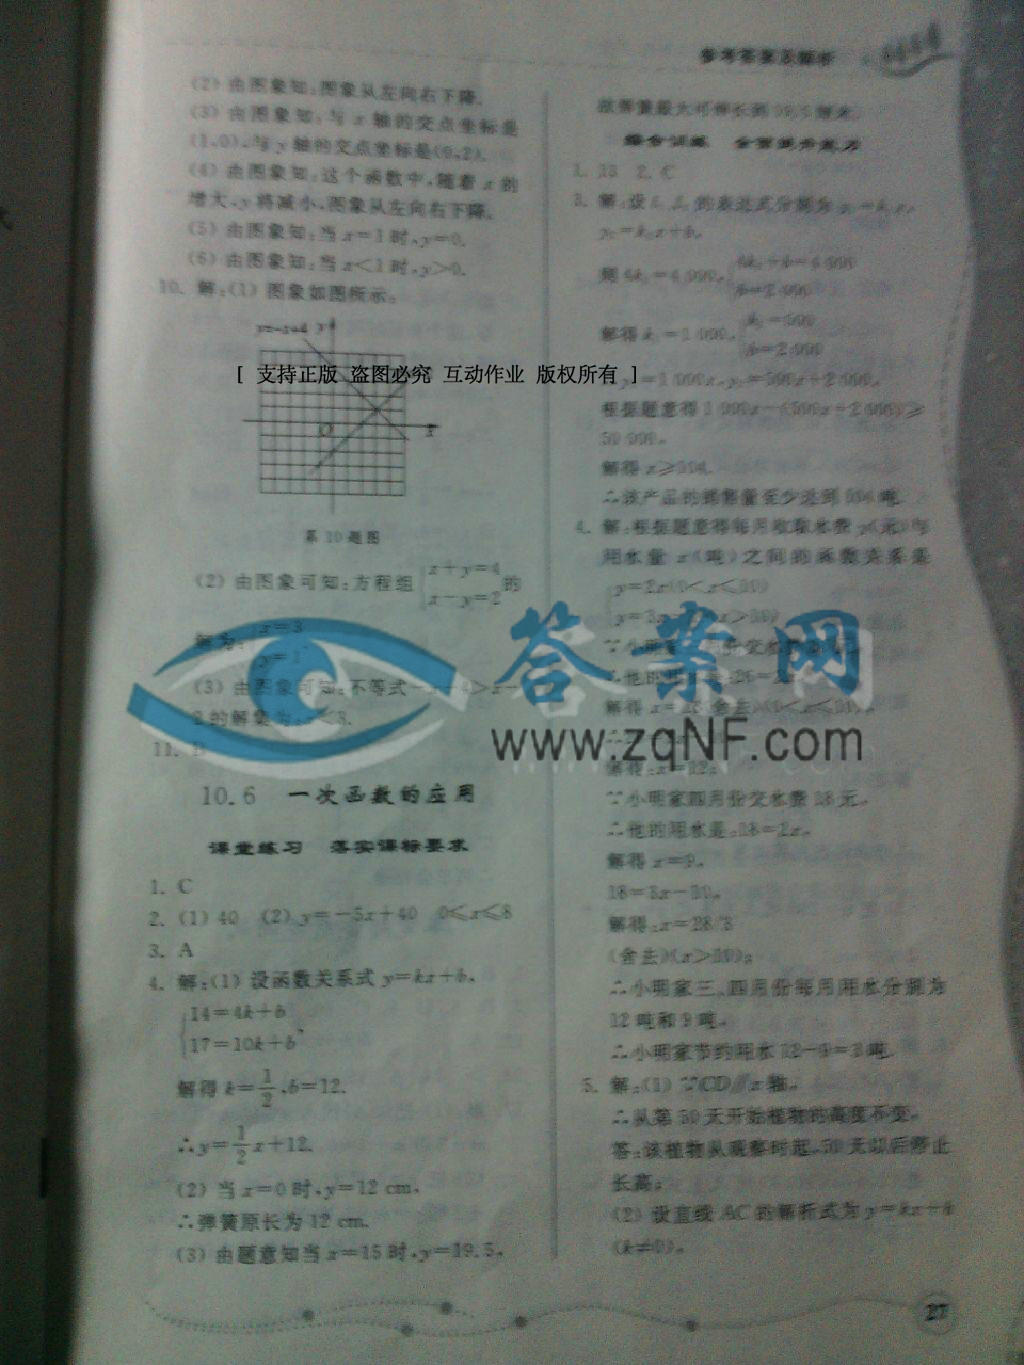 参考答案及解析
(2) 由图象知:图象从左向右下降.
(3) 由图象知:与 x 轴的交点坐标是
(1,0),与 y 轴的交点坐标是(0,2).
(4) 由图象知:这个函数中,随着 x 的
增大,y 将减小,图象从左向右下降.
(5) 由图象知:当 x=1 时,y=0.
(6) 由图象知:当 x<1 时,y>0.
10. 解:(1) 图象如图所示:
y=-x+4 y
O x
第 10 题图
(2) 由图象可知:方程组 {x+y=4 x-y=2 的
解为: x=3 y=1
(3) 由图象可知:不等式
的解集为:
11. D
10.6 一次函数的应用
课堂练习 落实课标要求
1. C
2. (1) 40 (2) y=-5x+40 0≤x≤8
3. A
4. 解:(1) 设函数关系式 y=kx+b,
{14=4k+b 17=10k+b,
解得 k=1/2,b=12.
∴y=1/2x+12.
(2) 当 x=0 时,y=12 cm,
∴弹簧原长为 12 cm.
(3) 由题意知当 x=15 时,y=19.5,
故弹簧最大可伸长到 19.5 厘米.
综合训练 全面提升能力
1. 15 2. C
3. 解:设 的表达式分别为
y₂=k₂x+b,
则 4k₁=4 000, {4k₂+b=4 000 b=2 000
解得 k₁=1 000, {k₂=500 b=2 000
y₁=1 000x,y₂=500x+2 000,
根据题意得 1 000x-(500x+2 000)≥
解得
∴该产品的销售量至少达到 吨.
4. 解:根据题意得每月收取水费 y(元)与
用水量 x(吨)之间的函数关系是
∵小明家 份交水费
∴他的用水
解得 (舍去)
解得:x=12;
∵小明家四月份交水费 18 元,
∴他的用水是:18=2x,
解得 x=9,
18=3x-10,
解得:x=28/3
(舍去)(x>10);
∴小明家三、四月份每月用水分别为
12 吨和 9 吨,
∴小明家节约用水 12-9=3 吨.
5. 解:(1) ∵CD∥x 轴,
∴从第 50 天开始植物的高度不变,
答:该植物从观察时起,50 天以后停止
长高;
(2) 设直线 AC 的解析式为 y=kx+b
(k≠0),
27
[ 支持正版 盗图必究 互动作业 版权所有 ]
答案网
www.zqNF.com